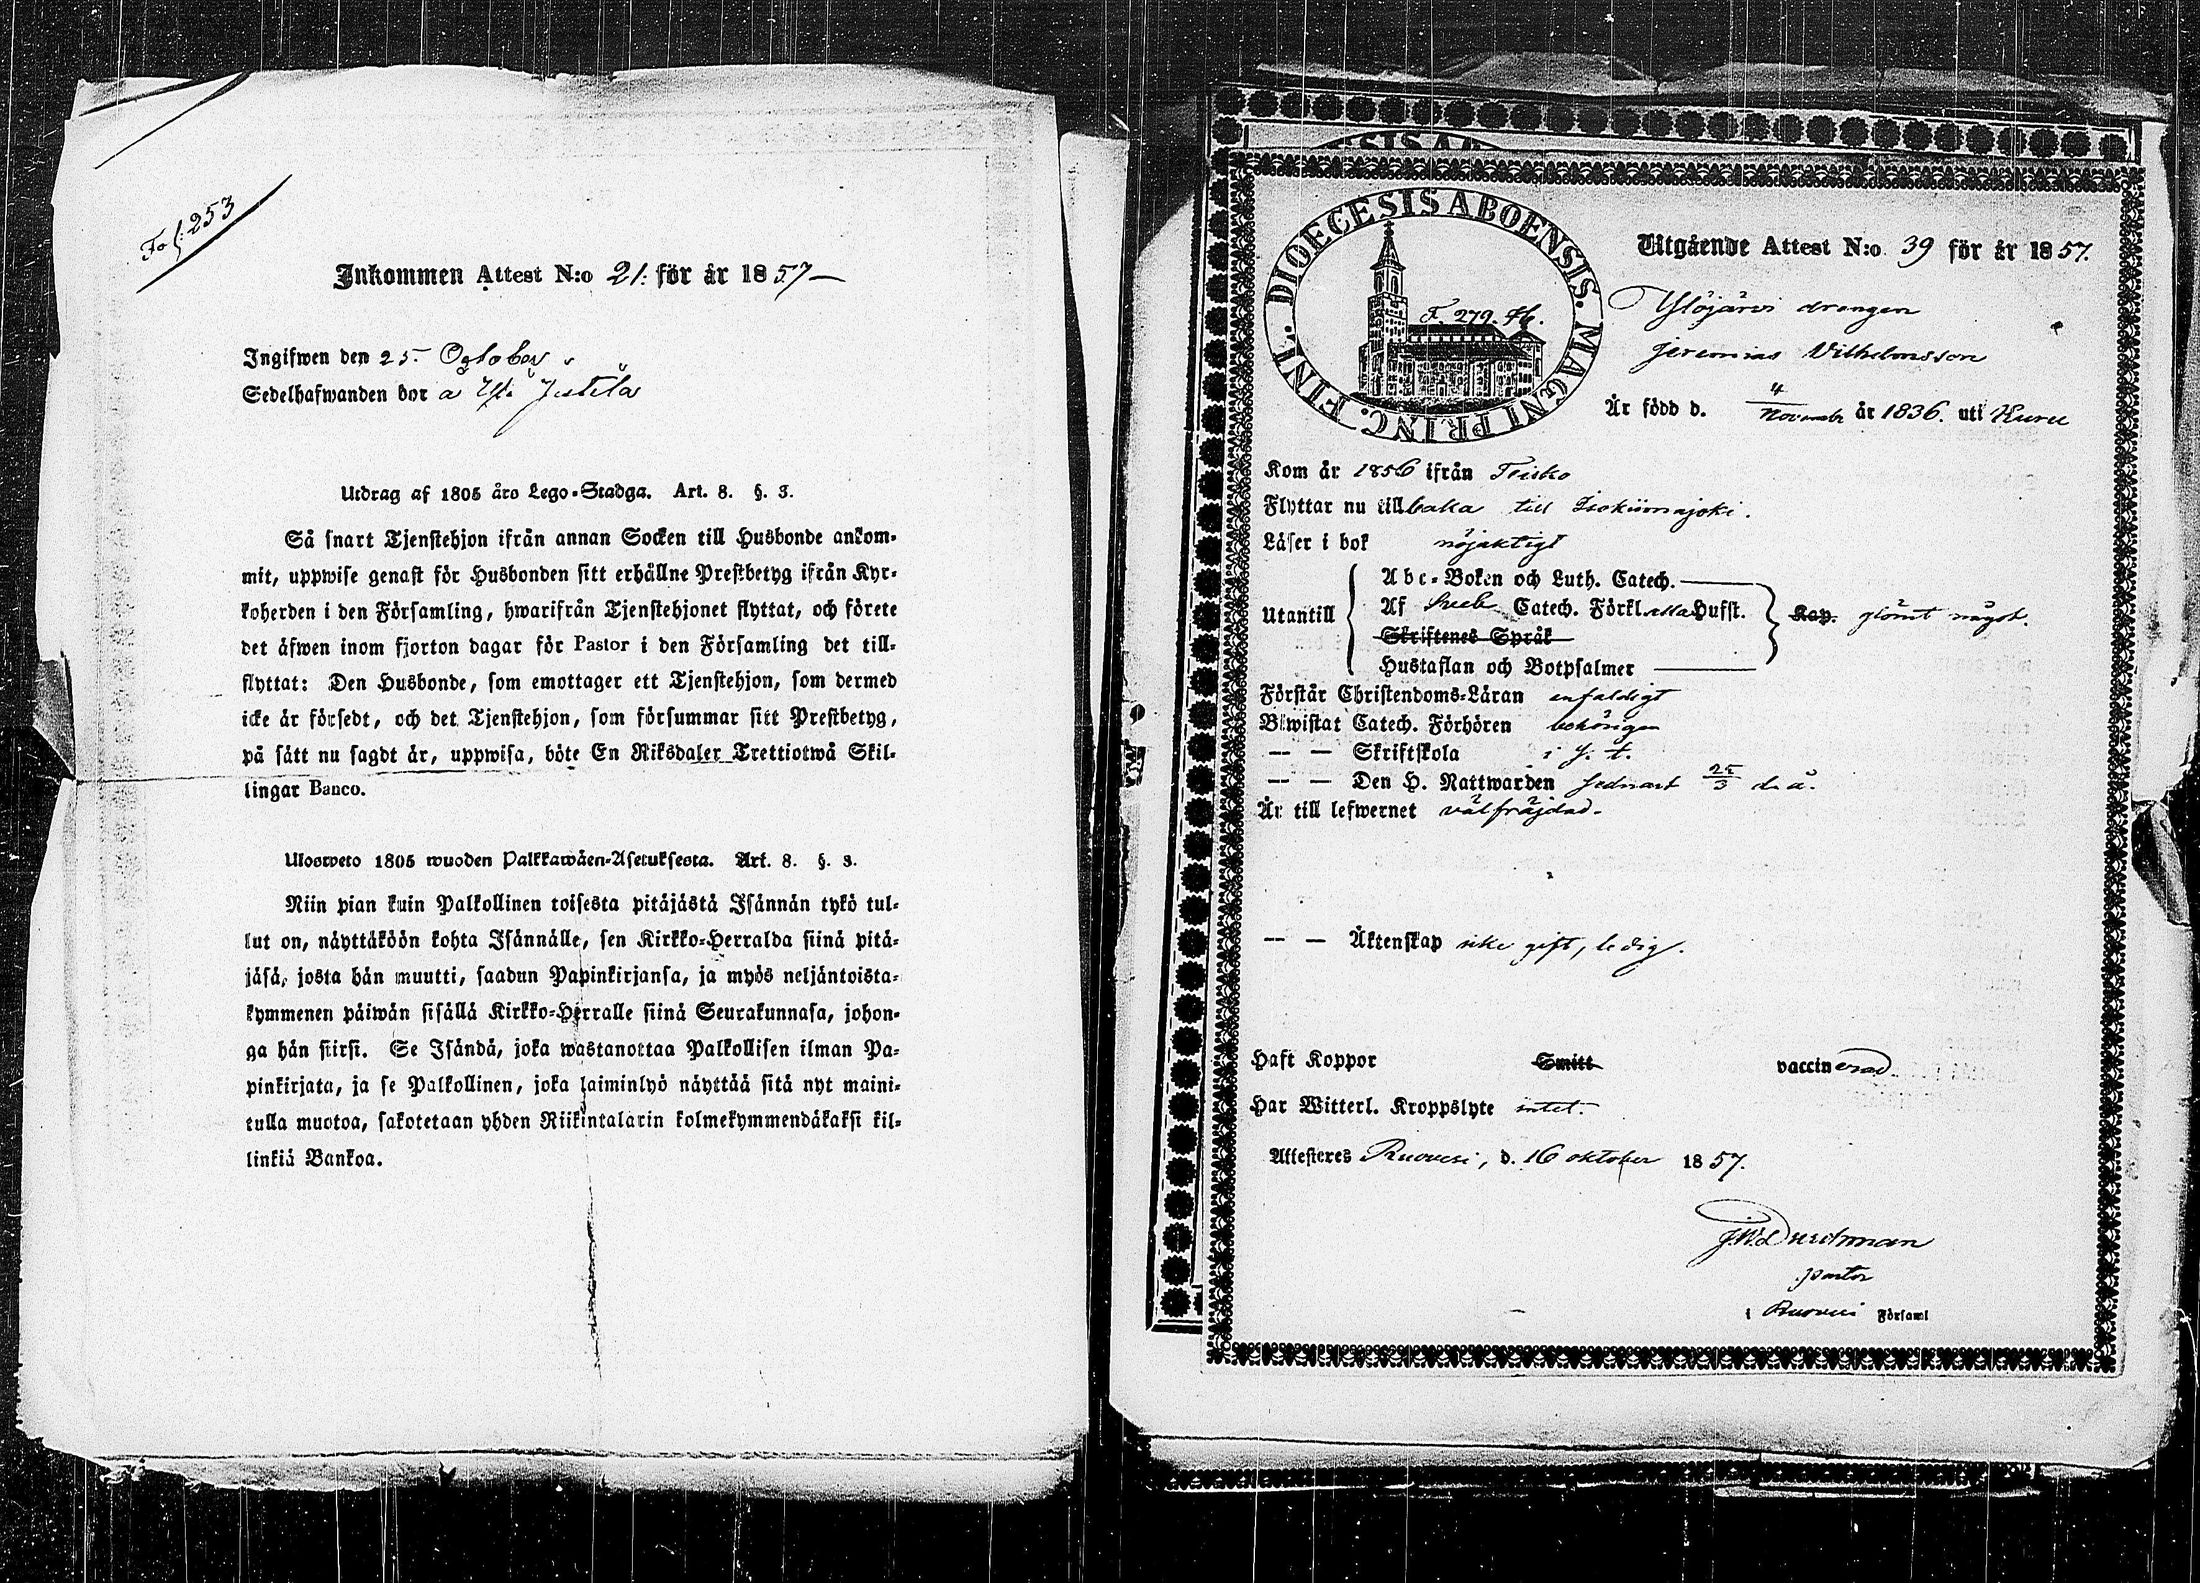 Fol: 253
Inkommen Attest N:o 21: för år 1857
Ingifwen den 25. October
Sedelhafwanden bor å
Utdrag af 1805 års Lego-Stadga. Art. 8. §. 3.
Så snart Tjenstehjon ifrån annan Socken till Husbonde ankom-
mit, uppwise genast för Husbonden sitt erhållne Prestbetyg ifrån Kyr-
koherden i den Församling, hwarifrån Tjenstehjonet flyttat, och förete
det äfwen inom fjorton dagar för Pastor i den Församling det till-
flyttat: Den Husbonde, som emottager ett Tjenstehjon, som dermed
icke är försedt, och det Tjenstehjon, som försummar sitt Prestbetyg,
på sätt nu sagdt är, uppwisa, böte En Riksdaler Trettiotwå Skil-
lingar Banco.
Ulosweto 1805 wuoden Palkkawäen-Asetuksesta. Art. 8. §. 3.
Niin pian kuin Palkollinen toisesta pitäjästä Isännän tykö tul-
lut on, näyttäköön kohta Isännälle, sen Kirkko-Herralda siinä pitä-
jäsä, josta hän muutti, saadun Papinkirjansa, ja myös neljäntoista-
kymmenen päiwän sisällä Kirkko-Herralle siinä Seurakunnasa, johon-
ga hän siirsi. Se Isändä, joka wastanottaa Palkollisen ilman Pa-
pinkirjata, ja se Palkollinen, joka laiminlyö näyttää sitä nyt maini-
tulla muotoa, sakotetaan yhden Riikintalarin kolmekymmendäkaksi kil-
linkiä Bankoa.
DIOECESIS ABOENSIS. MAGNI PRINC. FINL.
F. 279.
Utgående Attest N:o 39 för år 1857.
Ylöjärvi drengen
Jeremias Vilhelmsson
Är född d. 4/November år 1836. uti Kuru
Kom år 1856 ifrån Teisko
Flyttar nu tillbaka till
Läser i bok nöjaktigt
Utantill
Abc-Boken och Luth. Catech.
Af Sveb. Catech. Förkl. Hufst.
Skriftenes Språk
Hustaflan och Botpsalmer
Kap. glömt något.
Förstår Christendoms-Läran enfaldigt
Bewistat Catech. Förhören behörigen
— — Skriftskola i s. t.
— — Den H. Nattwarden sednast 25/3 d. å.
Är till lefwernet välfräjdad.
— — Äktenskap icke gift, ledig.
Haft Koppor Smitt vaccinerad
Har Witterl. Kroppslyte intet.
Attesteres Ruovesi, d. 16 oktober 1857.
pastor
i Ruovesi Församl